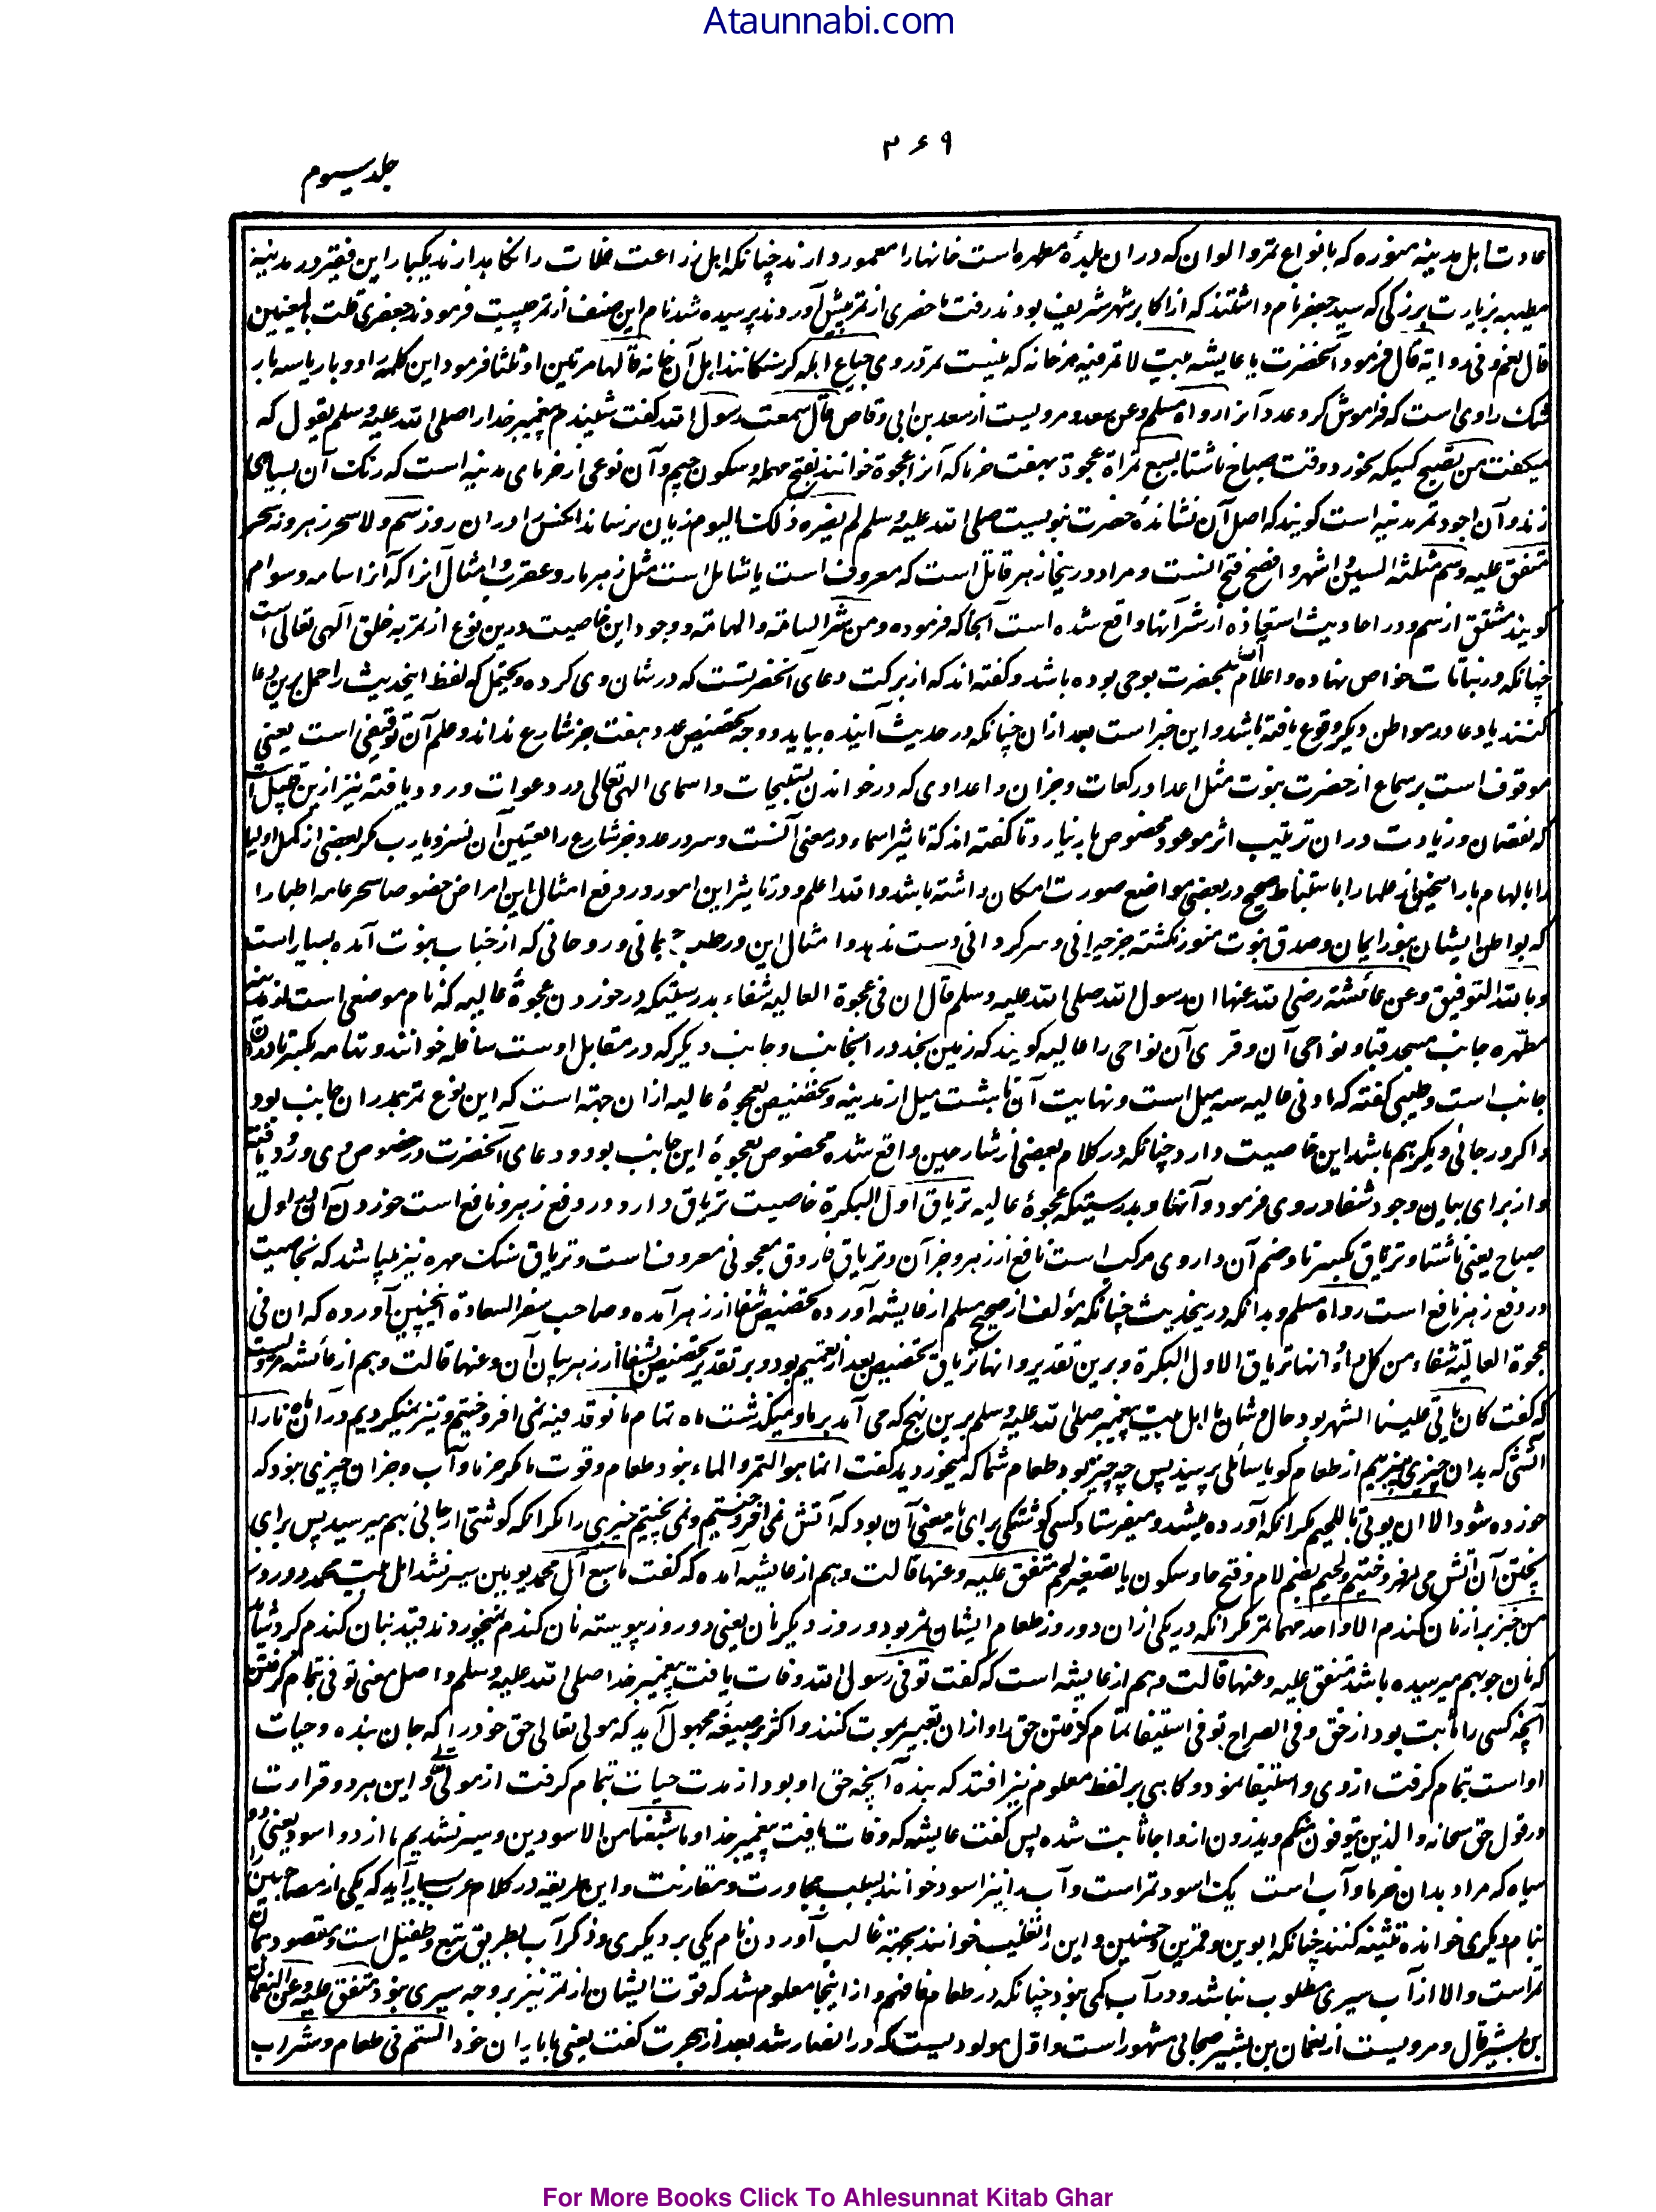 Ataunnabi.com
۳۶۹
جلد سیوم
عادت اہل مدینہ منورہ کہ بانواع تمر و الوان کہ دران بلدۂ مطہرہ است خانہا را معمور دارند چنانکہ اہل زراعت غلات را نگاہ دارند یکبار این فقیر در مدینہ
مطیبہ بزیارت بزرگی کہ سید جعفر نام داشتند کہ از اکابر شہر شریف بودند رفت ماحضری از تمر پیش آوردند پرسیدہ شد نام این صنف از تمر چیست فرمودند جعفری
قال نعم و فی روایة قال فرمود آنحضرت یا عایشہ بیت لا تمر فیہ ہر خانہ کہ نیست تمر در وی جیاع اہلہ گرسنگانند اہل آن خانہ قالہا مرتین او ثلثا فرمود این کلمہ را دو بار یا سہ بار
شک راوی است کہ فراموش کرد عدد آنرا رواہ مسلم و عن سعد و مرویست از سعد بن ابی وقاص قال سمعت رسول اللہ گفت شنیدم پیغمبر خدا را صلی اللہ علیہ وسلم یقول کہ
میگفت من تصبح کسیکہ بخورد وقت صباح ناشتا بسبع تمراة عجوة بہفت خرما کہ آنرا عجوة خوانند بفتح مہملہ و سکون جیم و آن نوعی از خرمای مدینہ است کہ رنگ آن بسیاہی
زند و آن اجود تمر مدینہ است گویند کہ اصل آن نشاندۂ حضرت نبویست صلی اللہ علیہ وسلم لم یضرہ ذلک الیوم زیان نرساند آنکس را دران روز سم و لا سحر زہر و نہ سحر
متفق علیہ و سم مثلثة السین و اشہر و افصح فتح آنست و مراد درینجا زہر قاتل است کہ معروف است یا شامل است مثل زہر مار و عقرب و امثال آنرا کہ آنرا سامہ و سوام
گویند مشتق از سم و در احادیث استعاذہ از شر آنہا واقع شدہ است آنجا کہ فرمودہ و من شر السامة و الہامة و وجود این خاصیت درین نوع از تمر بہ خلق آلہی تعالی است
چنانکہ در نباتات خواص نہادہ و اعلام آن بحضرت بوحی بودہ باشد و گفتہ اند کہ از برکت دعای آنحضرتست کہ در شان وی کردہ و یحتمل کہ لفظ اینحدیث را حمل برین دعا
کنند یا دعا در مواطن دیگر وقوع یافتہ باشد و این خبر است بعد ازان چنانکہ در حدیث آیندہ بیاید و وجہ تخصیص عدد ہفت جز شارع نداند و علم آن توقیفی است یعنی
موقوف است بر سماع از حضرت نبوت مثل اعداد رکعات و جزان و اعدادی کہ در خواندن تسبیحات و اسمای الہی تعالی در دعوات ورود یافتہ نیز ازین قبیل است
کہ نقصان و زیادت دران ترتیب اثر موعود مخصوص بار نیارد تا گفتہ اند کہ تاثیر اسماء در معنی آنست و سر در عدد جز شارع را تعیین آن نسزد یارب مگر بعضی از کمل اولیا
را بالہام یا راسخین از علما را باستنباط صحیح در بعضی مواضع صورت امکان داشتہ باشد و اللہ اعلم و در تاثیر این امور در رفع امثال این امراض خصوصا سحر عامہ اطبا را
کہ بواطن ایشان بنور ایمان و صدق نبوت منور نگشتہ جز حیرانی و سرگردانی دست ندہد و امثال این در طب جسمانی و روحانی کہ از جناب نبوت آمدہ بسیار است
و باللہ التوفیق و عن عائشة رضی اللہ عنہا ان رسول اللہ صلی اللہ علیہ وسلم قال ان فی عجوة العالیہ شفاء بدرستیکہ در خوردن عجوۂ عالیہ کہ نام موضعی است از مدینہ
مطہرہ جانب مسجد قبا و نواحی آن و قری آن نواحی را عالیہ گویند کہ زمین نجد در آنجانب و جانب دیگر کہ در مقابل اوست سافلہ خوانند و تہامہ بکسر تا دران
جانب است و طیبی گفتہ کہ ادنی عالیہ سہ میل است و نہایت آن تا ہشت میل از مدینہ و تخصیص بعجوۂ عالیہ ازان جہتہ است کہ این نوع تمر بجدران جانب بود
و اگر در جائی دیگر ہم باشد این خاصیت دارد چنانکہ در کلام بعضی از شارحین واقع شدہ مخصوص بعجوۂ این جانب بود و دعای آنحضرت در خصوص وی ورود یافتہ
و از برای بیان وجود شفا در وی فرمود و آنہا و بدرستیکہ عجوۂ عالیہ تریاق اول البکرة خاصیت تریاق دارد در دفع زہر و نافع است خوردن آن در اول
صباح یعنی ناشتا و تریاق بکسر تا و ضم آن داروی مرکب است نافع از زہر و جز آن و تریاق فاروق معجونی معروف است و تریاق سنگ مہرہ نیز میباشد کہ بخاصیت
در دفع زہر نافع است رواہ مسلم و بدانکہ درینحدیث چنانکہ مؤلف از صحیح مسلم از عایشہ آوردہ تخصیص شفا از زہر آمدہ و صاحب سفر السعادة اینچنین آوردہ کہ ان فی
عجوة العالیة شفاء من کل داء و انہا تریاق الاول البکرة و برین تقدیر و انہا تریاق تخصیص بعد از تعمیم بود و بر تقدیر تخصیص شفا از زہر بیان آن و عنہا قالت و ہم از عائشہ مرویست
کہ گفت کان یاتی علینا الشہر بود حال و شان ما اہل بیت پیغمبر صلی اللہ علیہ وسلم برین نہج کہ می آمد بر ما و میگذشت ماہ تمام ما نوقد فیہ نمی افروختیم و تیز نمیکردیم در آن ماہ نارا
آتشی کہ بدان چیزی بپزیم از طعام گویا سائلی پرسید پس چہ چیز بود طعام شما کہ میخوردید گفت انما ہو التمر و الماء نبود طعام و قوت ما مگر خرما و آب و جزان چیزی نبود کہ
خوردہ شود الا ان یوتی باللحیم مگر آنکہ آوردہ میشد و میفرستاد کسی گوشتکی برای ما یعنی آن بود کہ آتش نمی افروختیم و نمی پختیم چیزی را مگر آنکہ گوشتی از جائی بہم میرسید پس برای
پختن آن آتش می افروختیم و لحیم بضم لام و فتح حا و سکون یا تصغیر لحم متفق علیہ و عنہا قالت و ہم از عایشہ آمدہ کہ گفت ما شبع آل محمد یومین سیر نشد اہل بیت محمد دو روز
من خبز بر از نان گندم الا و احدہما تمر مگر آنکہ در یکی ازان دو روز طعام ایشان تمر بود و روز دیگر نان یعنی دو روز پیوستہ نان گندم نمیخوردند قید بنان گندم کرد شاید
کہ نان جو بہم میرسیدہ باشد متفق علیہ و عنہا قالت و ہم از عایشہ است کہ گفت توفی رسول اللہ وفات یافت پیغمبر خدا صلی اللہ علیہ وسلم و اصل معنی توفی تمام گرفتن
آنچہ کسی را ثابت بود از حق و فی الصراح توفی استیفا تمام گرفتن حق را و ازان تعبیر بموت کنند و اکثر بصیغہ مجہول آید کہ مولی تعالی حق خود را کہ جان بندہ و حیات
او است تمام گرفت از وی و استیفا نمود و گاہی بر لفظ معلوم نیز افتد کہ بندہ آنچہ حق او بود از مدت حیات تمام گرفت از مولی تعالی و این ہر دو قراءت
در قول حق سبحانہ و الذین یتوفون منکم و یذرون ازواجا ثابت شدہ پس گفت عایشہ کہ وفات یافت پیغمبر خدا و ما شبعنا من الاسودین و سیر نشدیم ما از دو اسود یعنی دو
سیاہ کہ مراد بدان خرما و آب است یک اسود تمر است و آب را نیز اسود خوانند بسبب مجاورت و مقارنت و این طریقہ در کلام عرب بسیار آید کہ یکی از مصاحبین را
بنام دیگری خواندہ تثنیہ کنند چنانکہ ابوین و قمرین و حسنین و این را تغلیب خوانند بجہتہ غالب آوردن نام یکی بر دیگری و ذکر آب بطریق تبع و طفیل است و مقصود ہمان
تمر است و الا از آب سیری مطلوب نباشد و در آب کمی نبود چنانکہ در طعام فافہم و از اینجا معلوم شد کہ قوت ایشان از تمر نیز بر وجہ سیری نبود متفق علیہ و عن النعمان
بن بشیر قال و مرویست از نعمان بن بشیر صحابی مشہور است و اول مولودیست کہ در انصار شد بعد از ہجرت گفت یعنی با یاران خود الستم فی طعام و شراب
For More Books Click To Ahlesunnat Kitab Ghar